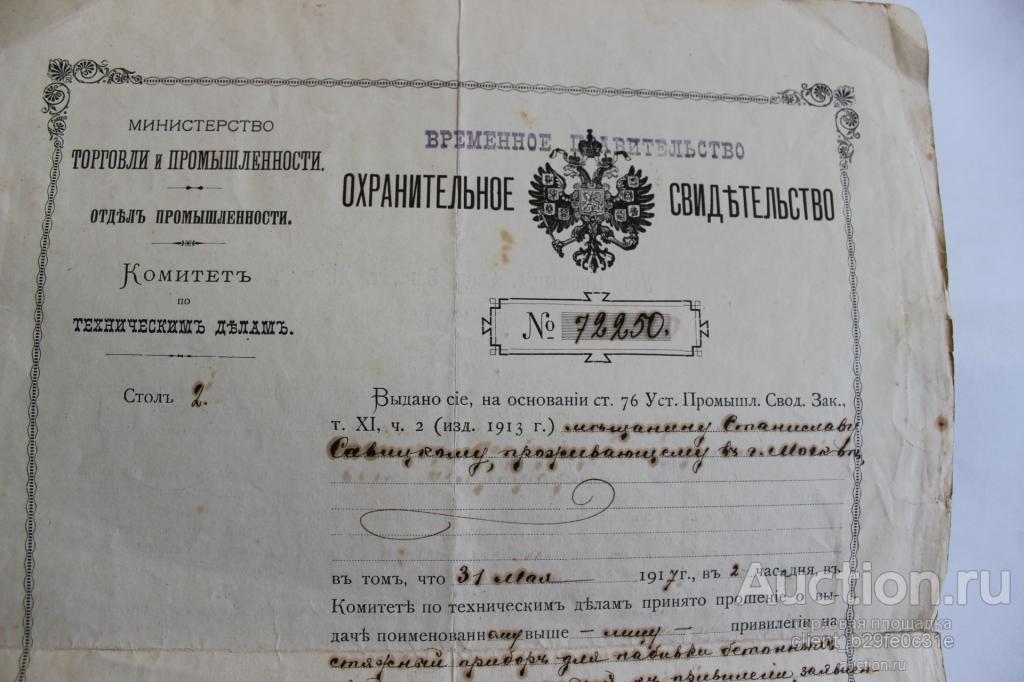 МИНИСТЕРСТВО
ТОРГОВЛИ и ПРОМЫШЛЕННОСТИ.
ОТДѢЛЪ ПРОМЫШЛЕННОСТИ.
КОМИТЕТЪ
ПО
ТЕХНИЧЕСКИМЪ ДѢЛАМЪ.
Столъ 2.
ВРЕМЕННОЕ ПРАВИТЕЛЬСТВО
ОХРАНИТЕЛЬНОЕ СВИДѢТЕЛЬСТВО
№ 72250.
Выдано сіе, на основаніи ст. 76 Уст. Промышл. Свод. Зак.,
т. XI, ч. 2 (изд. 1913 г.) мѣщанину Станиславу
Савицкому, проживающему въ г. Москвѣ,
въ томъ, что 31 Мая 1917 г., въ 2 час. дня, въ
Комитетѣ по техническимъ дѣламъ принято прошеніе о вы-
дачѣ поименованному выше — лицу — привилегіи на
стяжный приборъ для набивки бетонныхъ
привилегіи, заявлен
Auction.ru
торговая площадка
client_b29fe0c31e
auction.ru